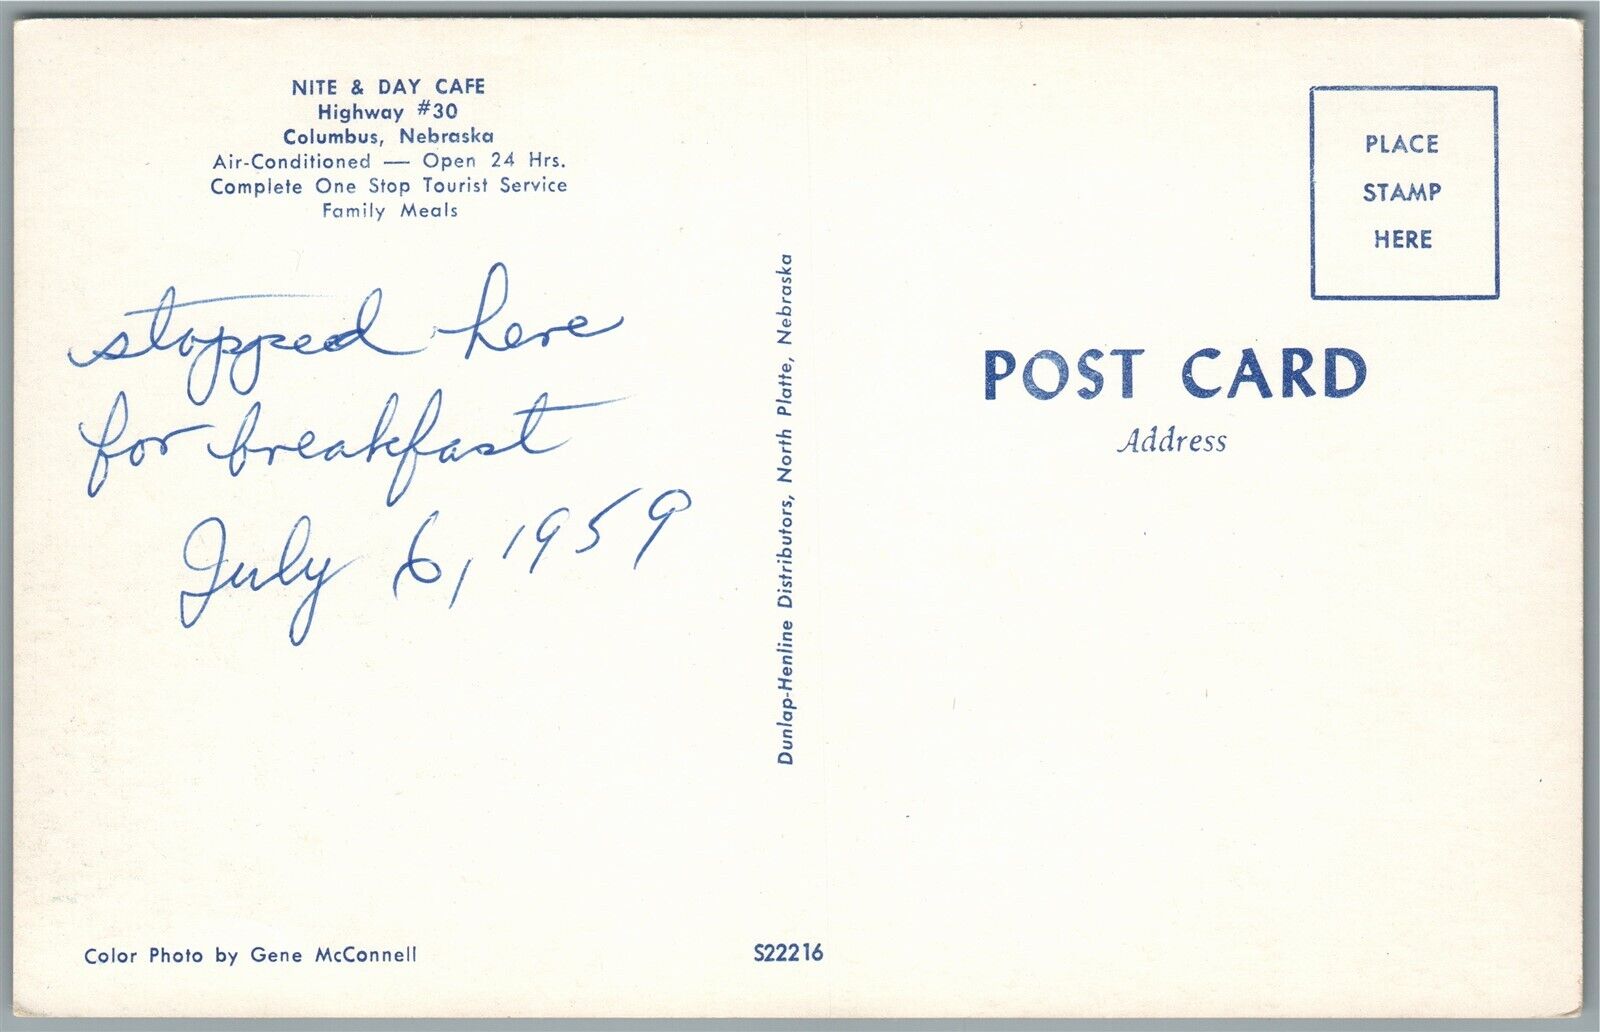 NITE & DAY CAFE
Highway #30
Columbus, Nebraska
Air-Conditioned — Open 24 Hrs.
Complete One Stop Tourist Service
Family Meals
stopped here
for breakfast
July 6, 1959
Color Photo by Gene McConnell
Dunlap-Henline Distributors, North Platte, Nebraska
S22216
PLACE
STAMP
HERE
POST CARD
Address